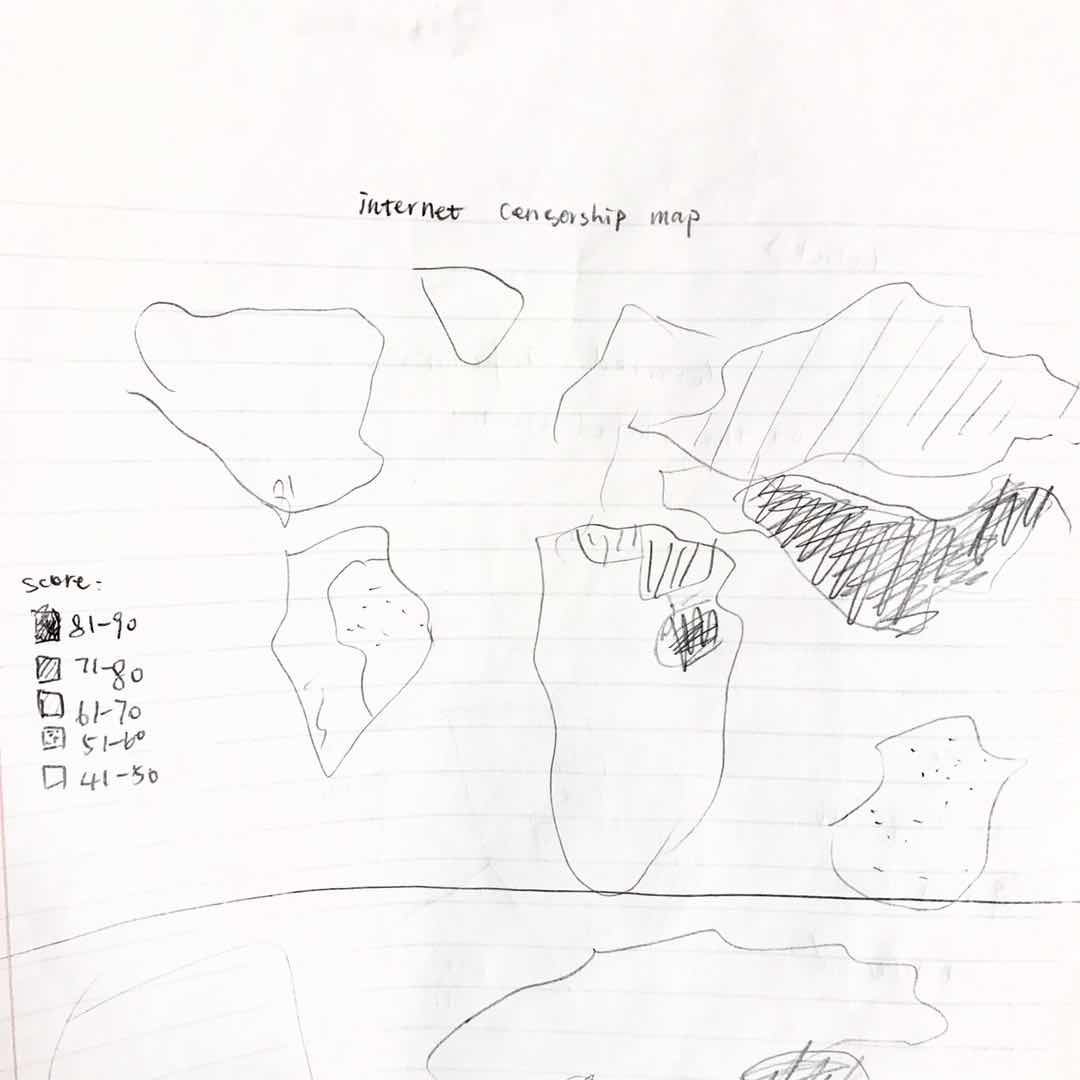 internet censorship map
score:
81-90
71-80
61-70
51-60
41-50